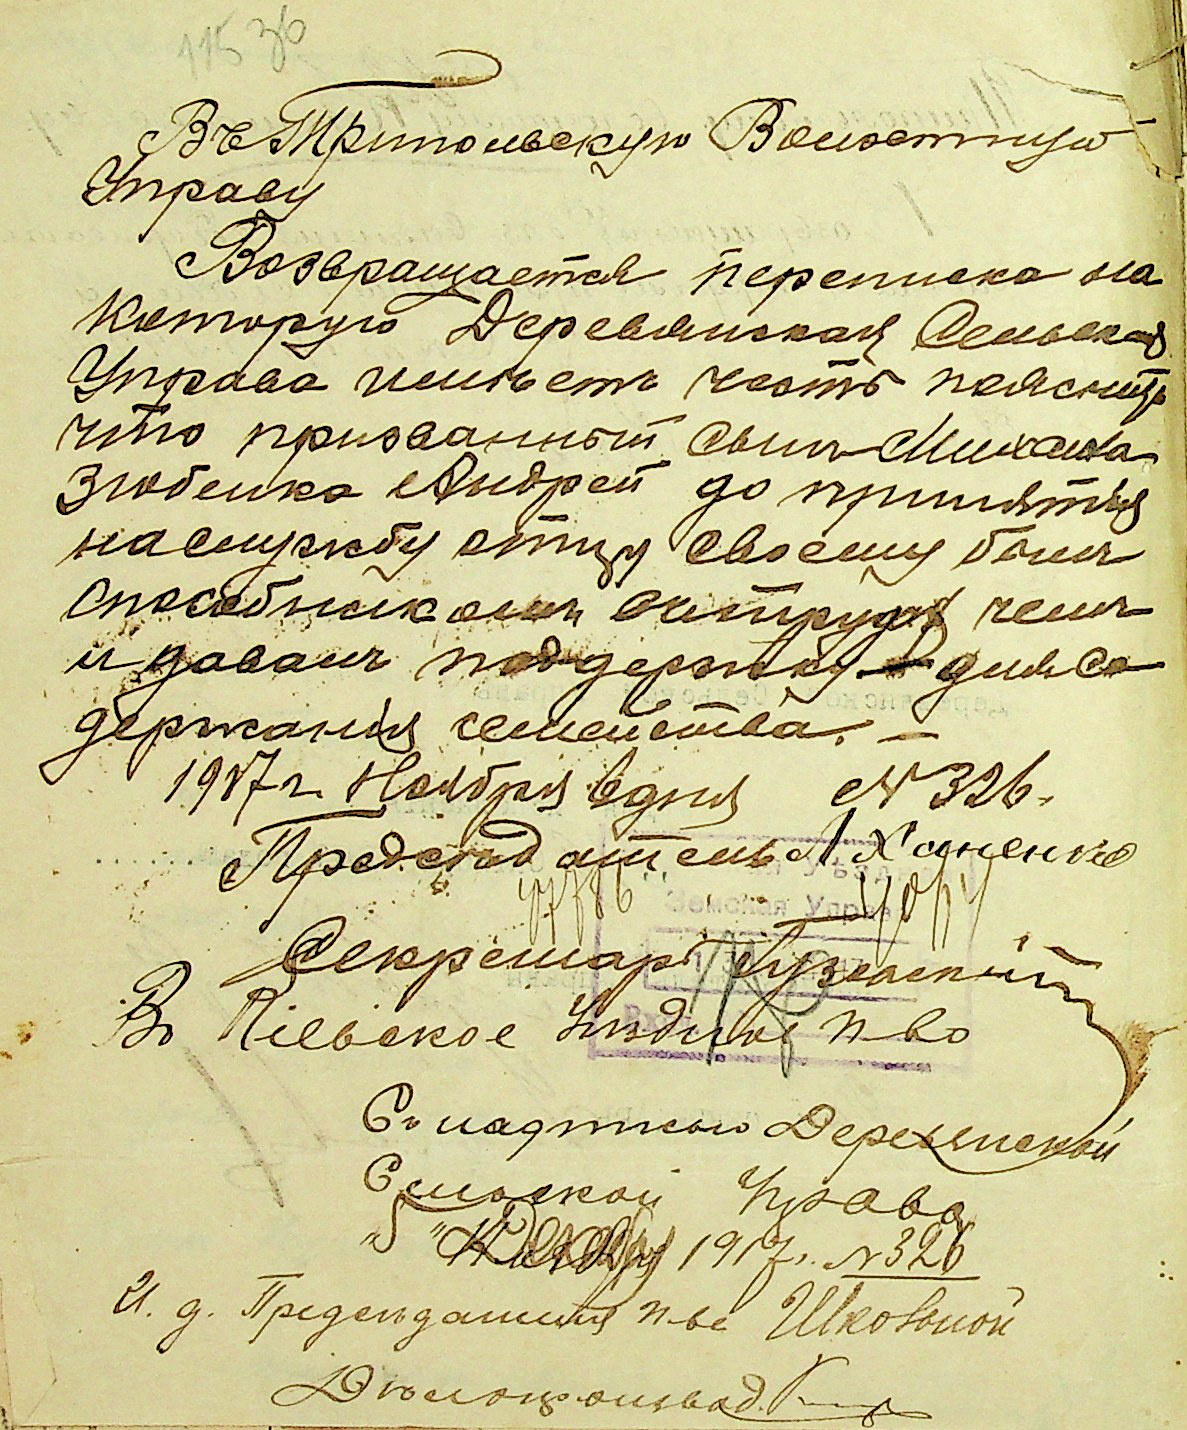 11536
Въ Трипольскую Волостную
Управу
Возвращается переписка на
которую Деревянская Сельская
Управа имѣетъ честь пояснить
что призванный сынъ Михаила
Зюбенка Андрей до принятія
на службу отцу своему былъ
способникомъ въ трудѣ чемъ
и давалъ поддержку для со
держания семейства. —
1917 г. Ноября 6 дня № 326.
Председатель Л Ханенко
Земская Управа
Секретарь Гузевский
Въ Кіевское Уѣздное п-во
Съ надписью Деревянской
Сельской Управы
1917 г. № 326
И. д. Председателя п-ва Школьной
Дѣлопроизвод.